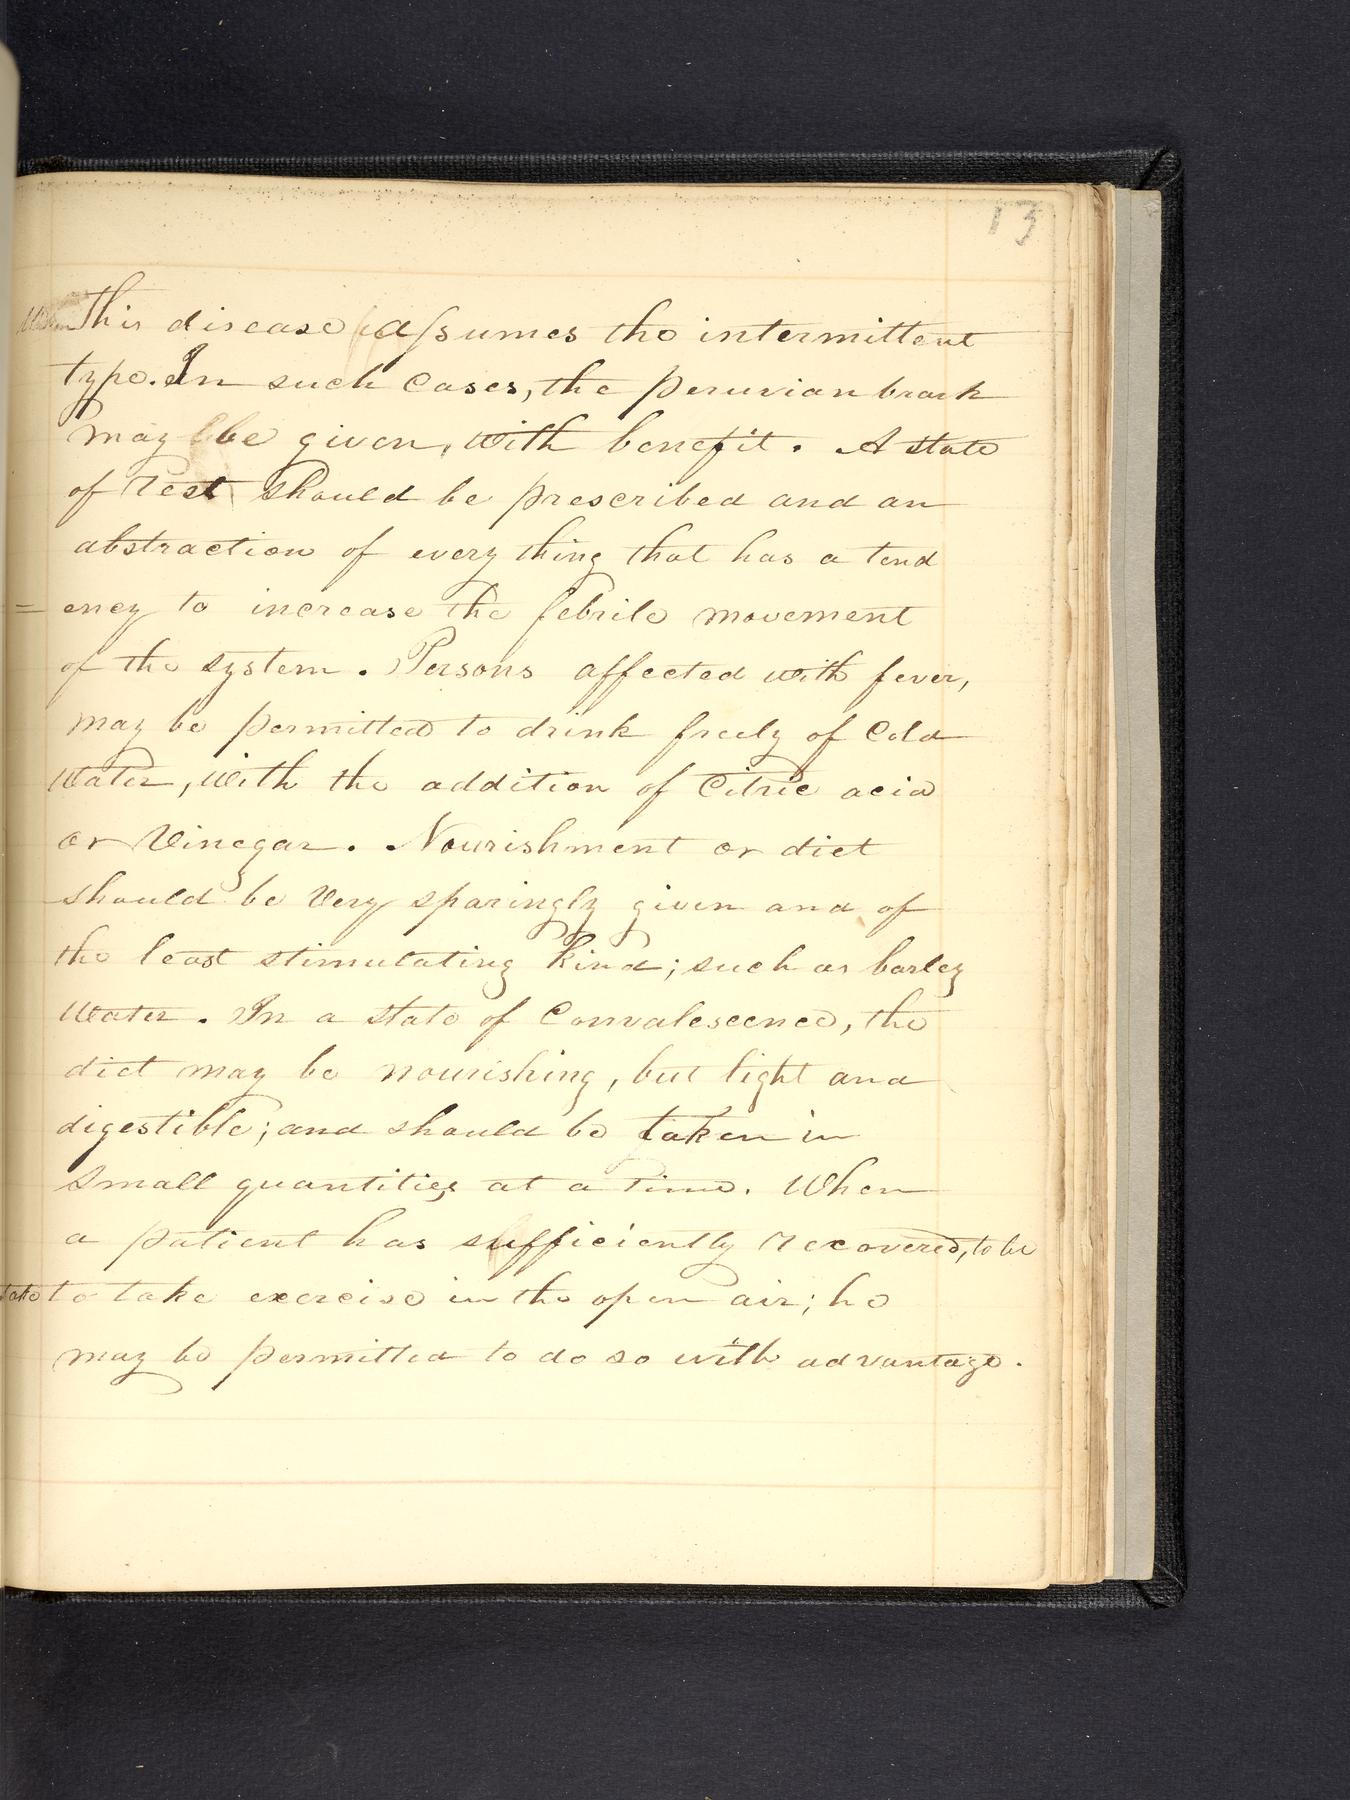 13
When this disease assumes the intermittent
type. In such cases, the peruvian brark
may be given, with benefit. A state
of rest should be prescribed and an
abstraction of every thing that has a tend
= ency to increase the febrile movement
of the system. Persons affected with fever,
may be permitted to drink freely of Cold
Water, with the addition of Citric acid
or Vinegar. Nourishment or diet
should be Very sparingly given and of
the least stimulating kind; such as barley
Water. In a state of Convalescence, the
diet may be nourishing, but light and
digestible; and should be taken in
Small quantities at a time. When
a patient has sufficiently recovered, to be
to take exercise in the open air; he
may be permitted to do so with advantage.